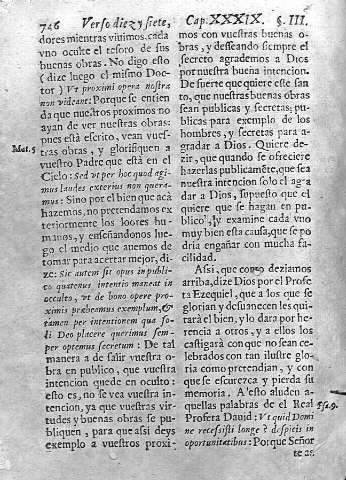 746 Verso diez y siete,
Cap. XXXIX. §. III.
dores mientras viuimos, cada
vno oculte el tesoro de sus
buenas obras. No digo esto
(dize luego el mismo Doc-
tor) Vt proximi opera nostra
non videant: Porque se entien
da que nuestros proximos no
ayan de ver nuestras obras:
pues està escrito, vean vues-
tras obras, y glorifiquen a
vuestro Padre que està en el
Cielo: Sed vt per hoc quod agi-
mus laudes exterius non quera-
mus: Sino por el bien que acà
hazemos, no pretendamos ex
teriormente los loores hu-
manos, y enseñandonos lue-
go el medio que auemos de
tomar para acertar mejor, di-
ze: Sic autem sit opus in publi-
co quatenus intentio maneat in
occulto, vt de bono opere pro-
ximis præbeamus exemplum, &
tamen per intentionem qua so-
li Deo placere querimus sem-
per optemus secretum: De tal
manera a de salir vuestra o-
bra en publico, que vuestra
intencion quede en oculto:
esto es, no se vea vuestra in-
tencion, ya que vuestras vir-
tudes y buenas obras se pu-
bliquen, para que assi deys
exemplo a vuestros proxi-
Mat. 5
mos con vuestras buenas o-
bras, y desseando siempre el
secreto agrademos a Dios
por nuestra buena intencion.
De suerte que quiere este san
to, que nuestras buenas obras
sean publicas y secretas; pu-
blicas para exemplo de los
hombres, y secretas para a-
gradar a Dios. Quiere de-
zir, que quando se ofreciere
hazerlas publicamẽte, que sea
nuestra intencion solo el agra
dar a Dios, supuesto que el
quiere que se hagan en pu-
blico, y examine cada vno
muy bien esta causa, que se po
dria engañar con mucha fa-
cilidad.
Assi, que como deziamos
arriba, dize Dios por el Profe
ta Ezequiel, que a los que se
glorian y desuanecen les qui-
tarà el bien, y lo dara por he-
rencia a otros, y a ellos los
castigarà con que no sean ce-
lebrados con tan ilustre glo-
ria como pretendian, y con
que se escurezca y pierda su
memoria. A esto aluden a-
quellas palabras de el Real
Profeta Dauid: Vt quid Domi
ne recessisti longe? despicis in
oportunitatibus: Porque Señor
te as
Psa. 9.